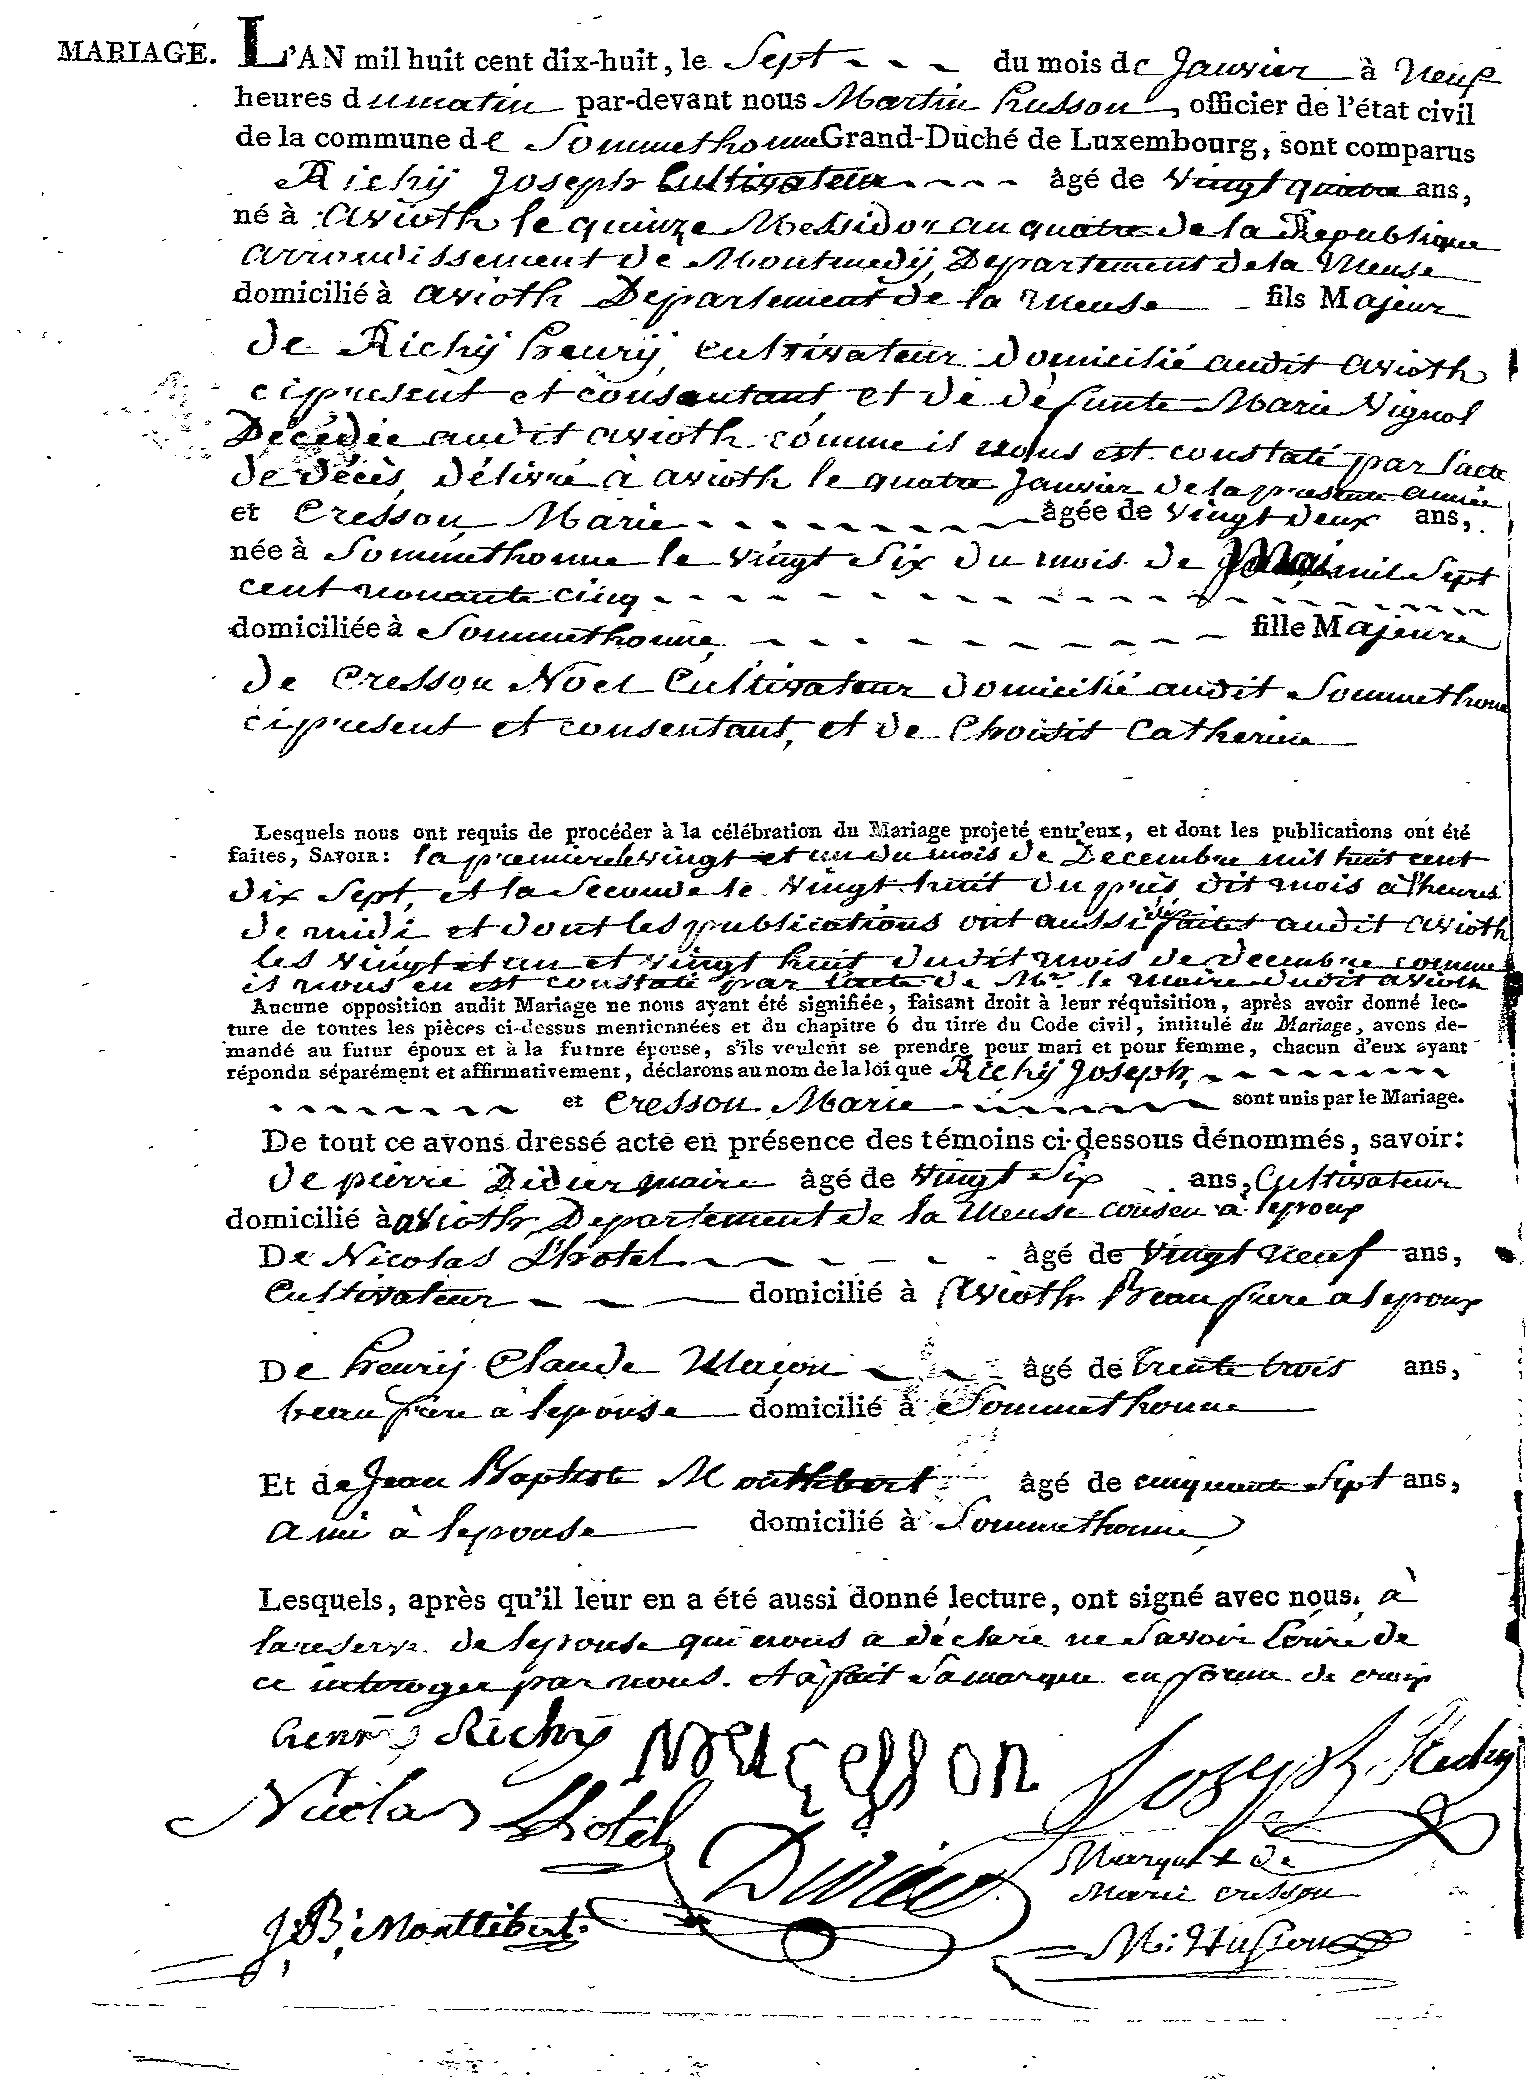 MARIAGE. L'AN mil huit cent dix-huit, le Sept du mois de Janvier à neuf
heures du matin par-devant nous Martin husson, officier de l'état civil
de la commune de Sommethonne Grand-Duché de Luxembourg, sont comparus
Richÿ Joseph Cultivateur âgé de vingt quatre ans,
né à avioth le quinze Messidor an quatre de la Republique
arrondissement de Montmedÿ, Departement de la Meuse
domicilié à avioth Departement de la Meuse fils Majeur
de Richÿ henrÿ, cultivateur domicilié audit avioth
ci present et consentant, et de défunte Marie Vignol
Décédée audit avioth comme il nous est constaté par l'acte
de décès, délivré à avioth le quatre Janvier de la presente année
et Cresson Marie âgée de vingt deux ans,
née à Sommethonne le vingt Six du mois de Mai mil Sept
cent nonante cinq
domiciliée à Sommethonne, fille Majeure
de Cresson Noel Cultivateur domicilié audit Sommethonne
ci present et consentant, et de Choisit Catherine
Lesquels nous ont requis de procéder à la célébration du Mariage projeté entr'eux, et dont les publications ont été
faites, SAVOIR: la premiere le vingt et un du mois de Decembre mil huit cent
dix Sept, et la Seconde le vingt huit du près dit mois a l'heures
de midi et dont les publications ont aussi été faites audit avioth
les vingt et un et vingt huit dudit mois de decembre comme
il nous en est constaté par l'acte de Mr. le maire dudit avioth
Aucune opposition audit Mariage ne nous ayant été signifiée, faisant droit à leur réquisition, après avoir donné lec-
ture de toutes les pièces ci-dessus mentionnées et du chapitre 6 du titre du Code civil, intitulé du Mariage, avons de-
mandé au futur époux et à la future épouse, s'ils veulent se prendre pour mari et pour femme, chacun d'eux ayant
répondu séparément et affirmativement, déclarons au nom de la loi que Richÿ Joseph,
et Cresson Marie sont unis par le Mariage.
De tout ce avons dressé acte en présence des témoins ci-dessous dénommés, savoir:
de pierre Didier maire âgé de vingt Six ans, Cultivateur
domicilié à avioth, Departement de la Meuse cousin à lepoux
De Nicolas Lhotel âgé de vingt neuf ans,
Cultivateur domicilié à avioth Beau frere a lepoux
De henrÿ Claude Maçon âgé de trente trois ans,
beau frere à lepouse domicilié à Sommethonne
Et de Jean Baptist Monthibert âgé de cinquante Sept ans,
ami à lepouse domicilié à Sommethonne,
Lesquels, après qu'il leur en a été aussi donné lecture, ont signé avec nous. à
la reserve de lepouse qui nous a déclaré ne Savoir Écrire de
ce interogée par nous. et a fait Sa marque en forme de croix
henrÿ Richÿ Noel Cresson Joseph Richÿ
Nicolas Lhotel Didier Marque + de
Marie cresson
J: B: Monttibert M: Husson